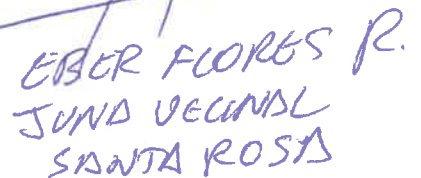 EBER FLORES R.
JUNA VECINAL
SANTA ROSA